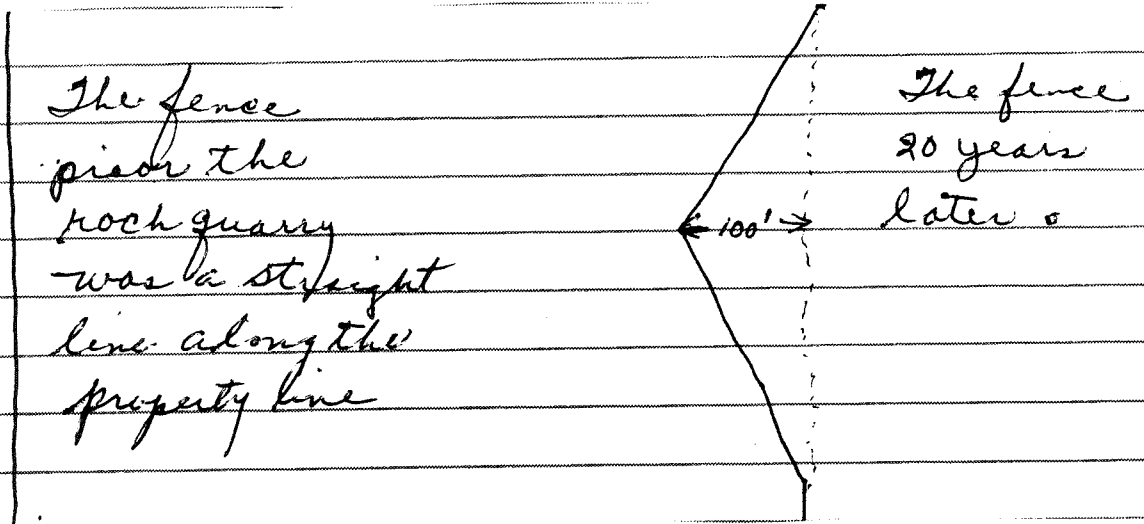 The fence
prior the
roch quarry
was a straight
line along the
property line
100'
The fence
20 years
later.